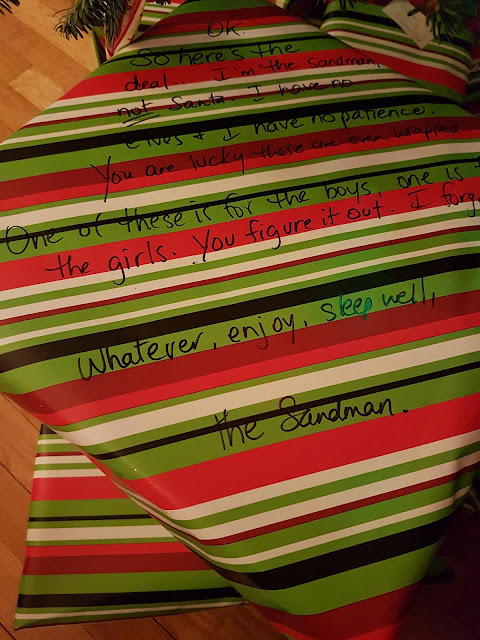 OK.
So here's the
deal... I'm the Sandman,
not Santa. I have no
elves & I have no patience.
You are lucky these are even wrapped
One of these is for the boys, one is
the girls. You figure it out. I
Whatever, enjoy, sleep well,
the Sandman.